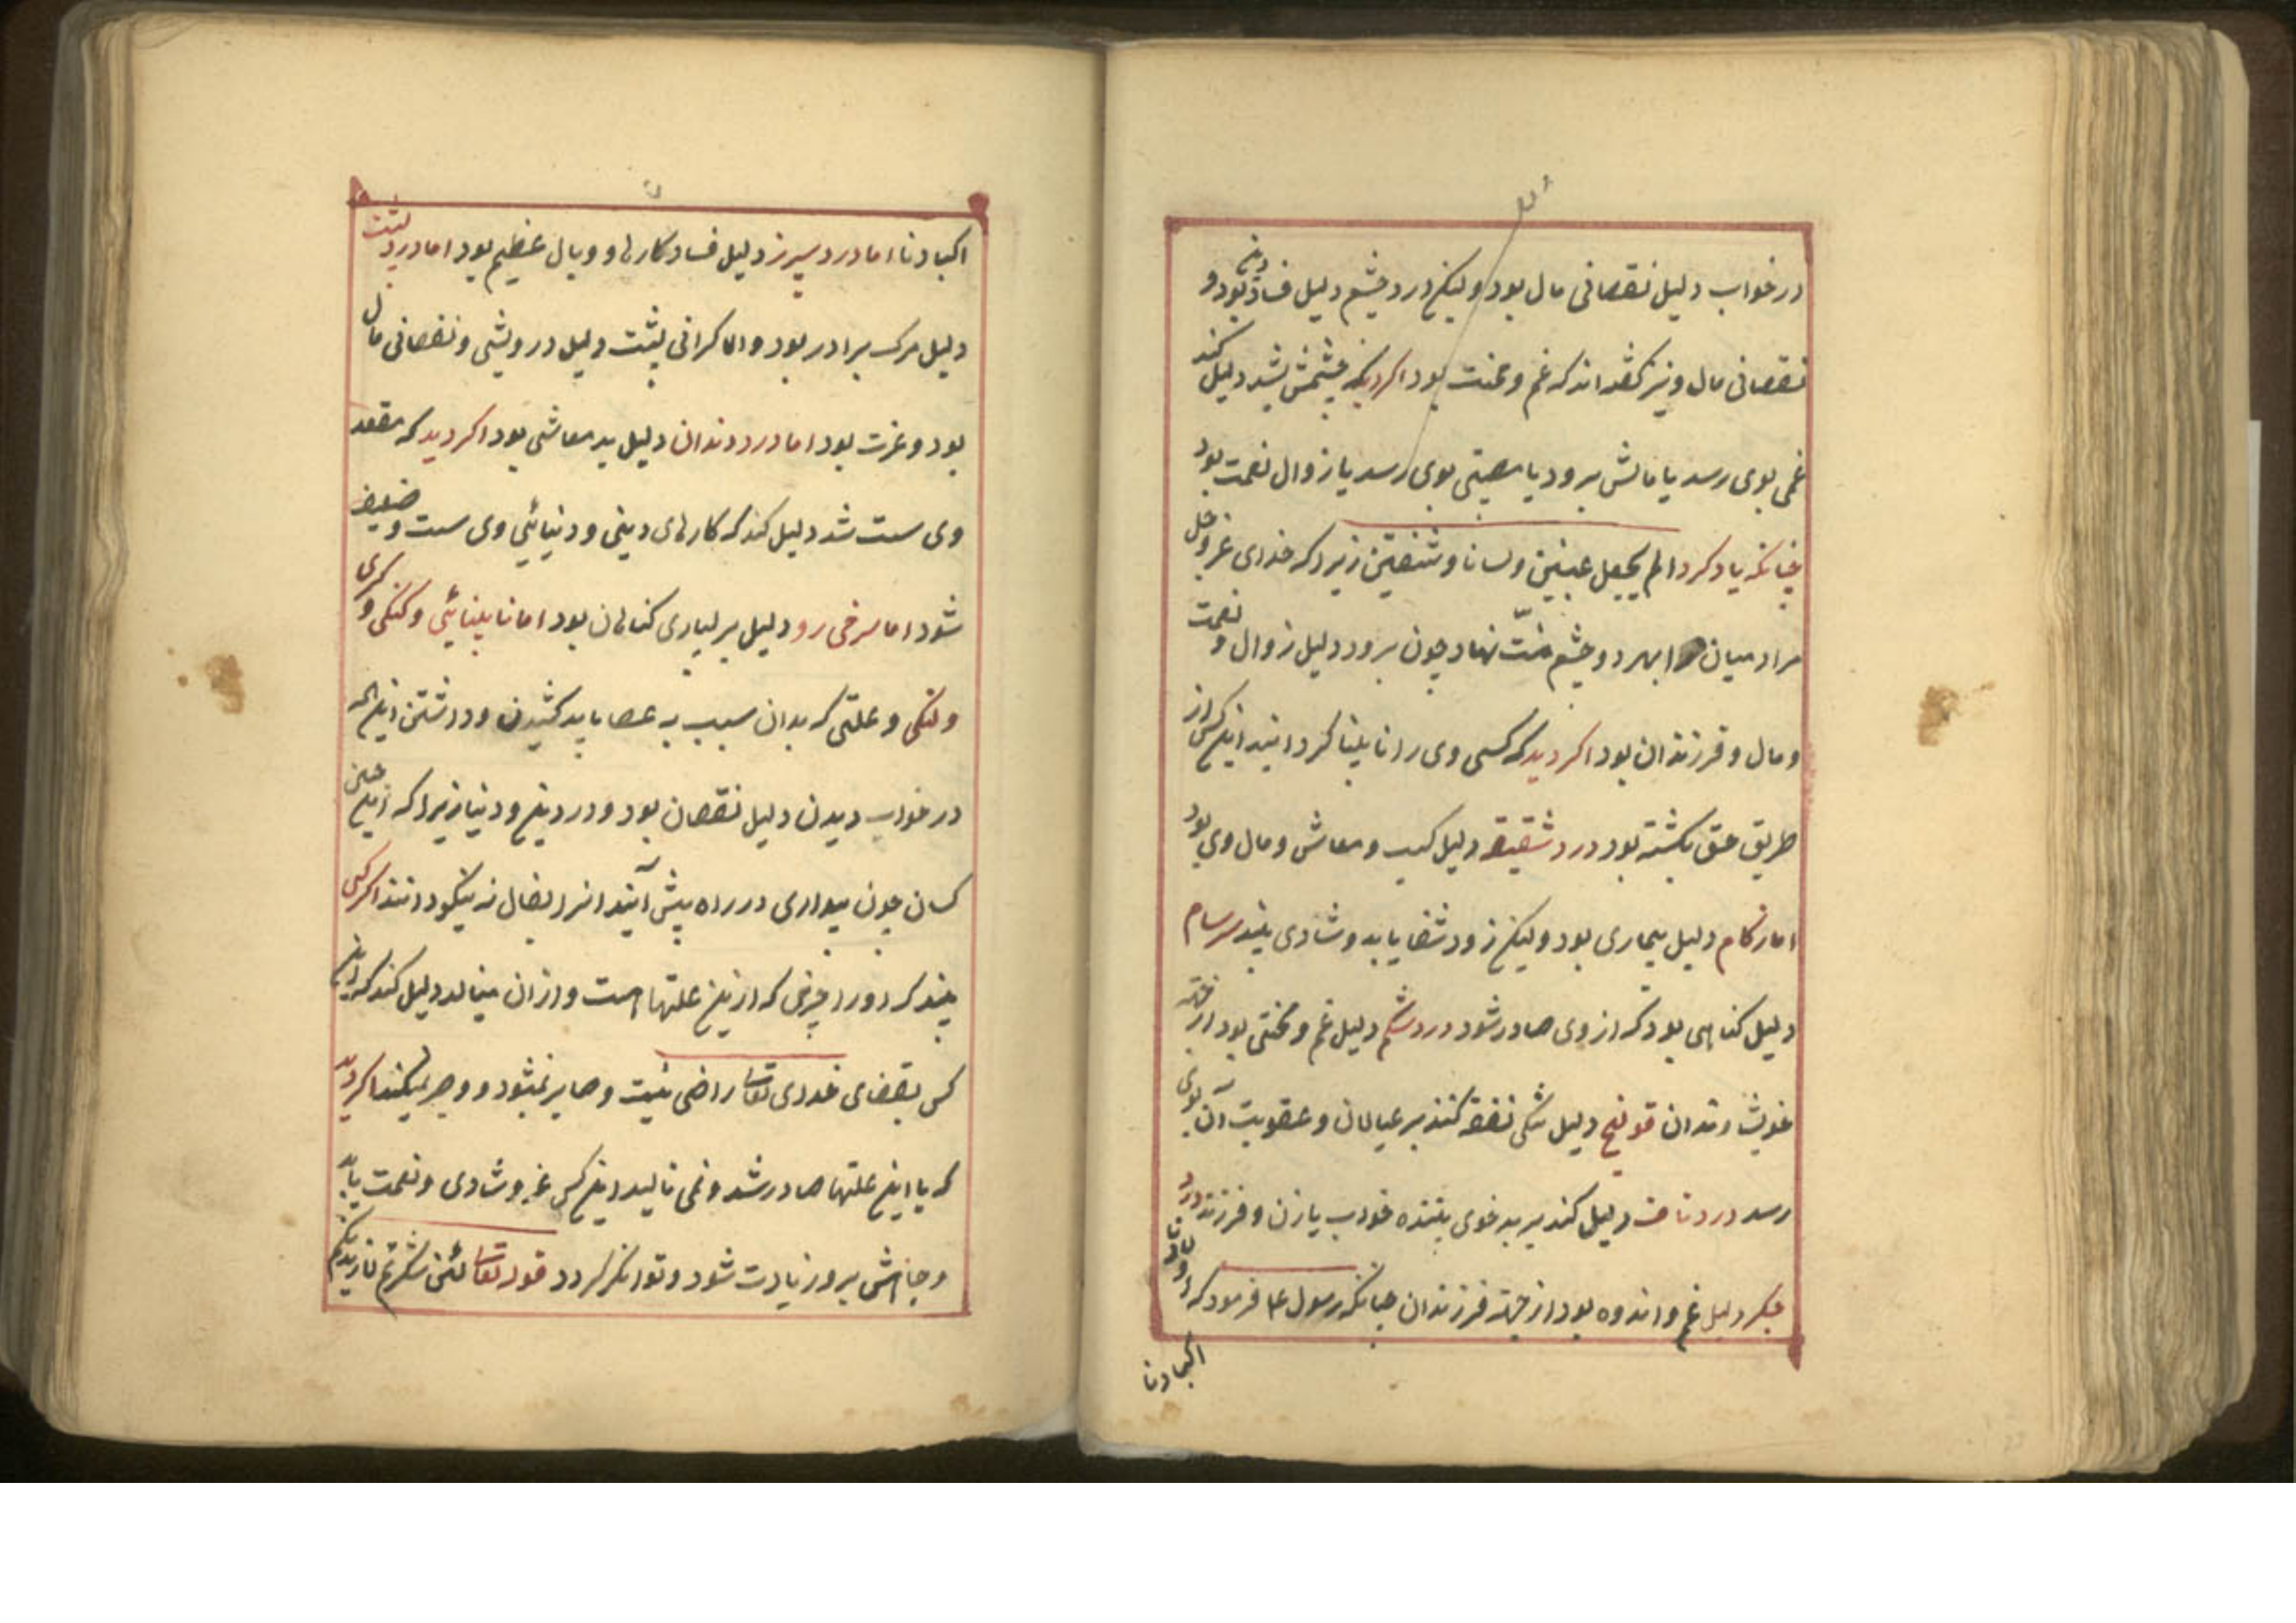 در خواب دلیل نقصانی مال بود ولیکن درد چشم دلیل فساد دین بود و
نقصانی مال و نیز گفته اند که غم و محنت بود اکر دید که چشمش بشد دلیل کند
غمی بوی رسد یا مالش برود یا مصیبتی بوی رسد یا زوال نعمت بود
چنانکه یاد کرد الم یجعل عینین ولسانا وشفتین زیرا که خدای عز وجل
مراد میان را بهر دو چشم منّت نهاد چون برود دلیل زوال و نعمت
و مال و فرزندان بود اکر دید که کسی وی را نابینا کردانید اینکس از
طریق حق بکشته بود درد شقیقه دلیل کسب و معاش و مال وی بود
اما زکام دلیل بیماری بود ولیکن زود شفا یابد و شادی بیند سرسام
دلیل کناهی بود که از وی صادر شود درد شکم دلیل غم و محنتی بود از جهة
خویشاوندان قولنج دلیل تنکی نفقه کند بر عیالان و عقوبت آن بوی
رسد درد ناف دلیل کند بر بدخوی بیننده خواب با زن و فرزند درد
جکر دلیل غم و اندوه بود از جهة فرزندان چنانکه رسول ع م فرمود که اولادنا
اکبادنا
اکبادنا اما درد سپرز دلیل فساد کارها و وبال عظیم بود اما درد پشت
دلیل مرک برادر بود و اما کرانی پشت دلیل درویشی و نقصانی مال
بود و عزت بود اما درد دندان دلیل بد معاشی بود اکر دید که مقعد
وی سست شد دلیل کند که کارهای دینی و دنیائی وی سست و ضعیف
شود اما سرخی رو دلیل بر بسیاری کناهان بود اما نابینائی و کنکی و کری
و لنکی و علتی که بدان سبب به عصا باید کشیدن و داشتن
در خواب دیدن دلیل نقصان بود و در دین و دنیا زیرا که اینچنین
کسان چون بیداری در راه پیش آیند انرا بفال نه نیکو دانند اکر کسی
بیند که او را چیزی که ازین علتها است و از ان مینالد دلیل کند که این
کس بقضای خدای تعالی راضی نیست و صابر نمیشود و صبر نمیکند اکر دید
که با این علتها صادر شد و نمی نالید این کس عز و شادی و نعمت یابد
و جاهش برو زیادت شود و توانکر کردد قوله تعالی لئن شکرتم لازیدنکم